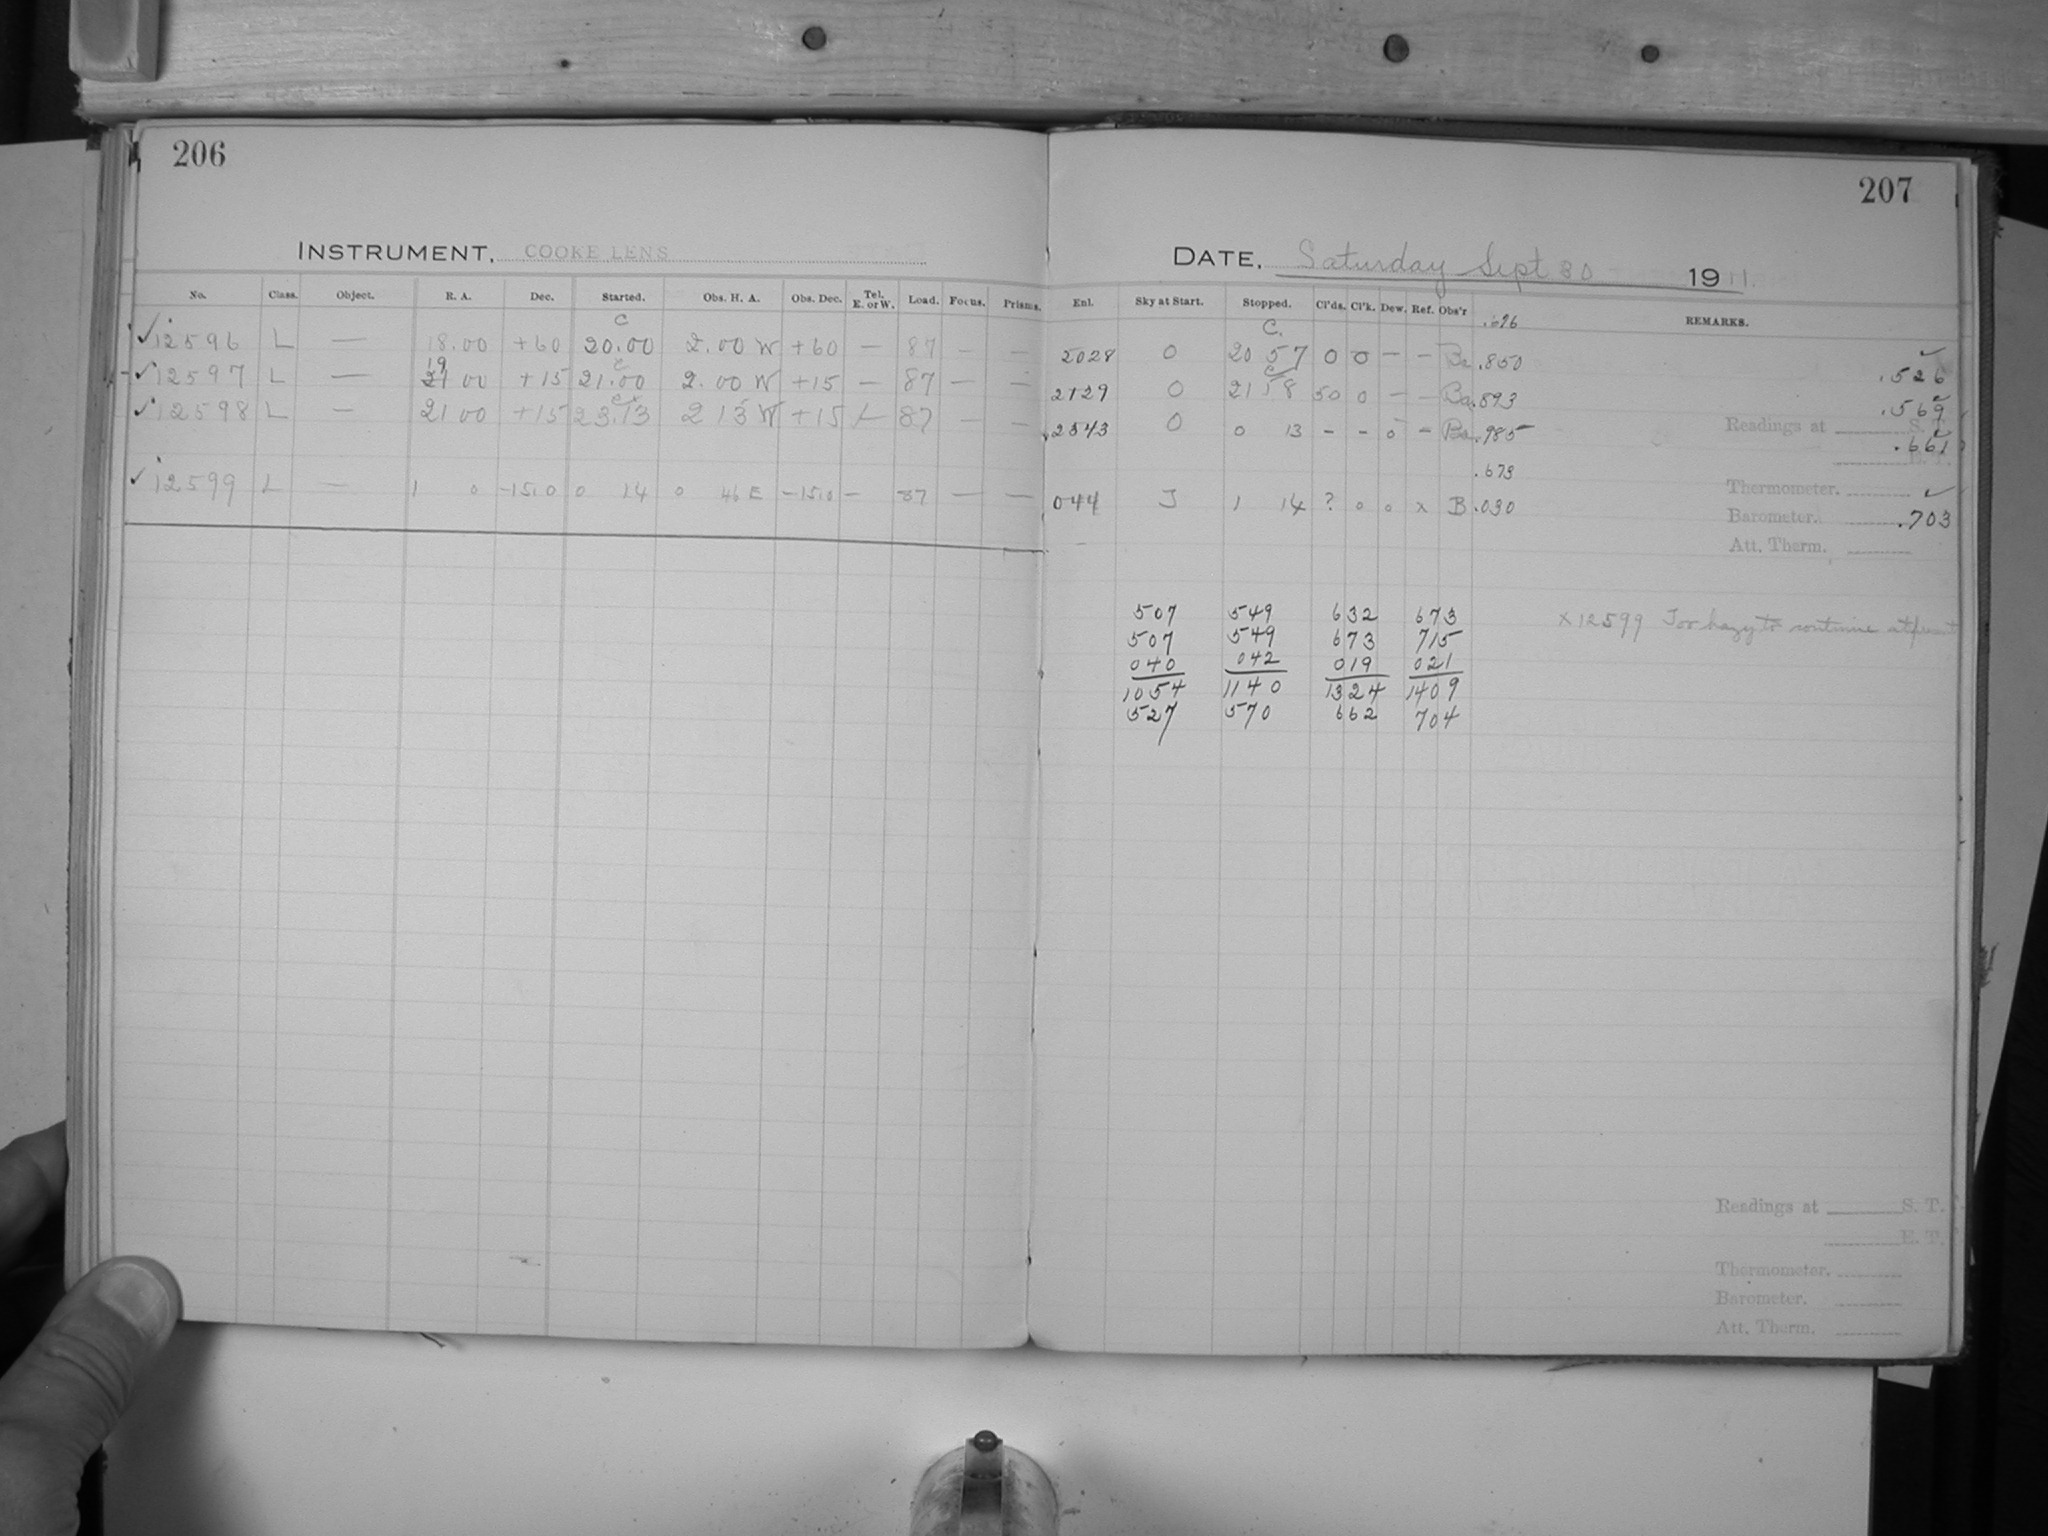 206
INSTRUMENT, COOKE LENS
No. Class. Object. R. A. Dec. Started. Obs. H. A. Obs. Dec. Tel. E. or W. Load. Focus. Prisms.
C
✓12596 L — 18.00 +60 20.00 2.00 W +60 — 87 — —
19 C
✓12597 L — 21 00 +15 21.00 2.00 W +15 — 87 — —
✓12598 L — 21 00 +15 23.13 2 13 W +15 87 — —
✓12599 L — 1 0 -15.0 0 14 0 46 E -15.0 — 87 — —
207
DATE, Saturday Sept 30 1911.
Enl. Sky at Start. Stopped. Cl'ds. Cl'k. Dew. Ref. Obs'r REMARKS.
C.
2028 0 20 57 0 0 — — Ba .850
.526
2129 0 21 58 50 0 — — Ba .893
.569
2343 0 0 13 - - 0 - Ba .985
.661
.673
044 J 1 14 ? 0 0 x B .030
.703
Readings at S. T.
E. T.
Thermometer.
Barometer.
Att. Therm.
507 549 632 673
507 549 673 715
040 042 019 021
1054 1140 1324 1409
527 570 662 704
x 12599 Too hazy to continue at present
Readings at S. T.
E. T.
Thermometer.
Barometer.
Att. Therm.